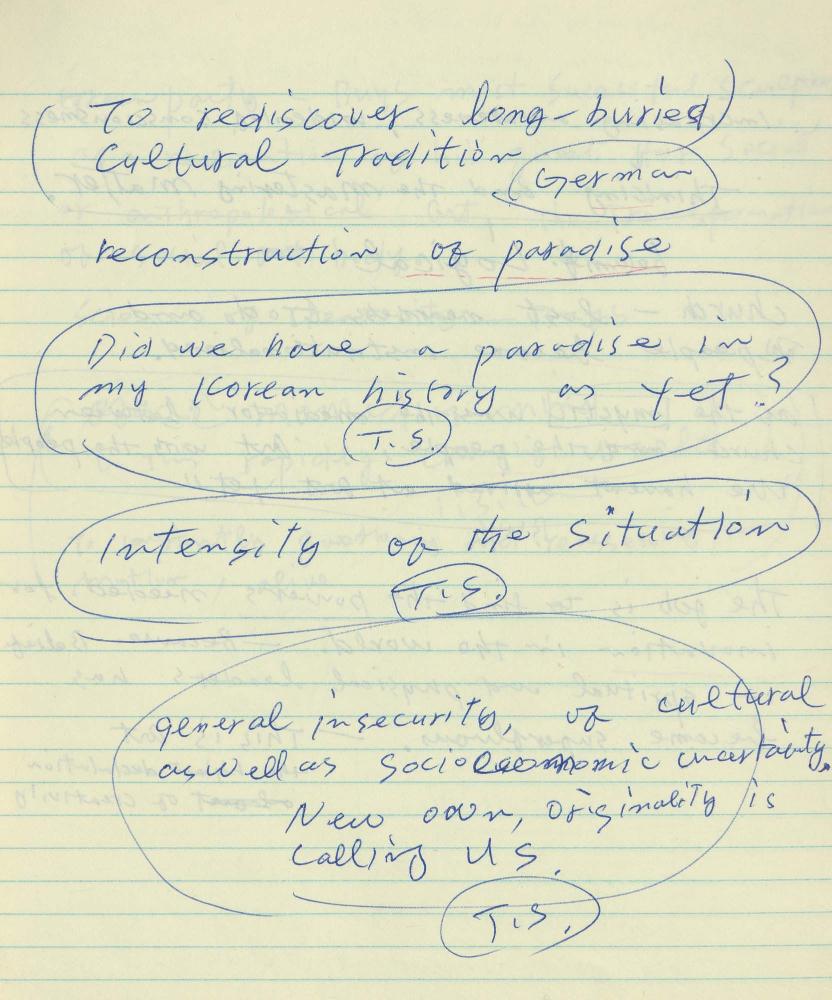 (To rediscover long-buried)
Cultural Tradition
German
reconstruction of paradise
Did we have a paradise in
my Korean history as yet?
T.S.
Intensity of the Situation
T.S.
general insecurity, of cultural
as well as socioeconomic uncertainty.
New own, originality is
calling us.
T.S.